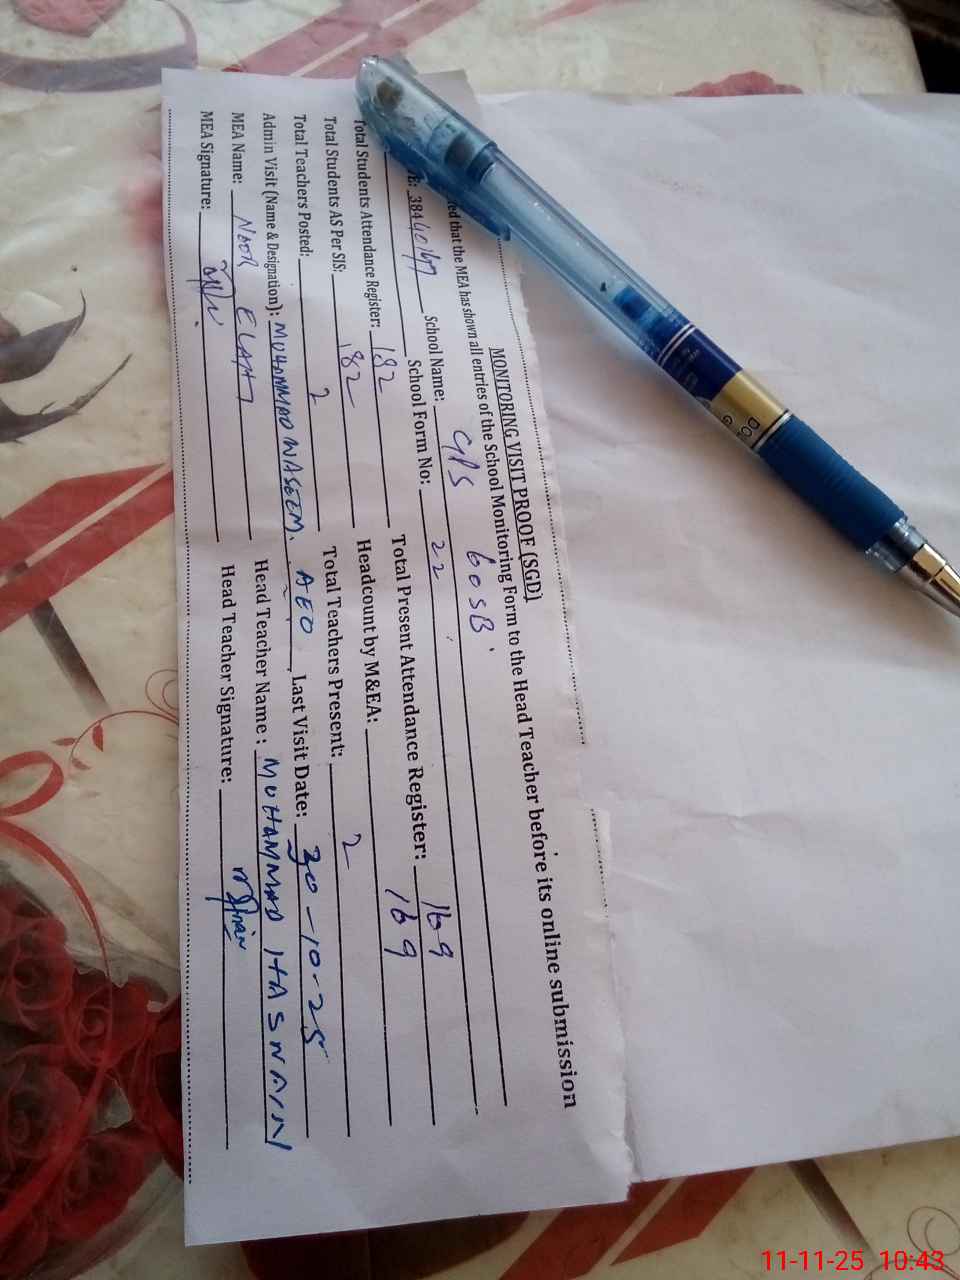 MONITORING VISIT PROOF (SGD)
that the MEA has shown all entries of the School Monitoring Form to the Head Teacher before its online submission
38440147 School Name: GPS 60 SB.
School Form No: 22
Total Students Attendance Register: 182 Total Present Attendance Register: 169
Total Students AS Per SIS: 182 Headcount by M&EA: 169
Total Teachers Posted: 2 Total Teachers Present: 2
Admin Visit (Name & Designation): MUHAMMAD WASEEM. AEO, Last Visit Date: 30-10-25
MEA Name: NOOR ELAHI Head Teacher Name: MUHAMMAD HASNAIN
MEA Signature: Head Teacher Signature:
11-11-25 10:43